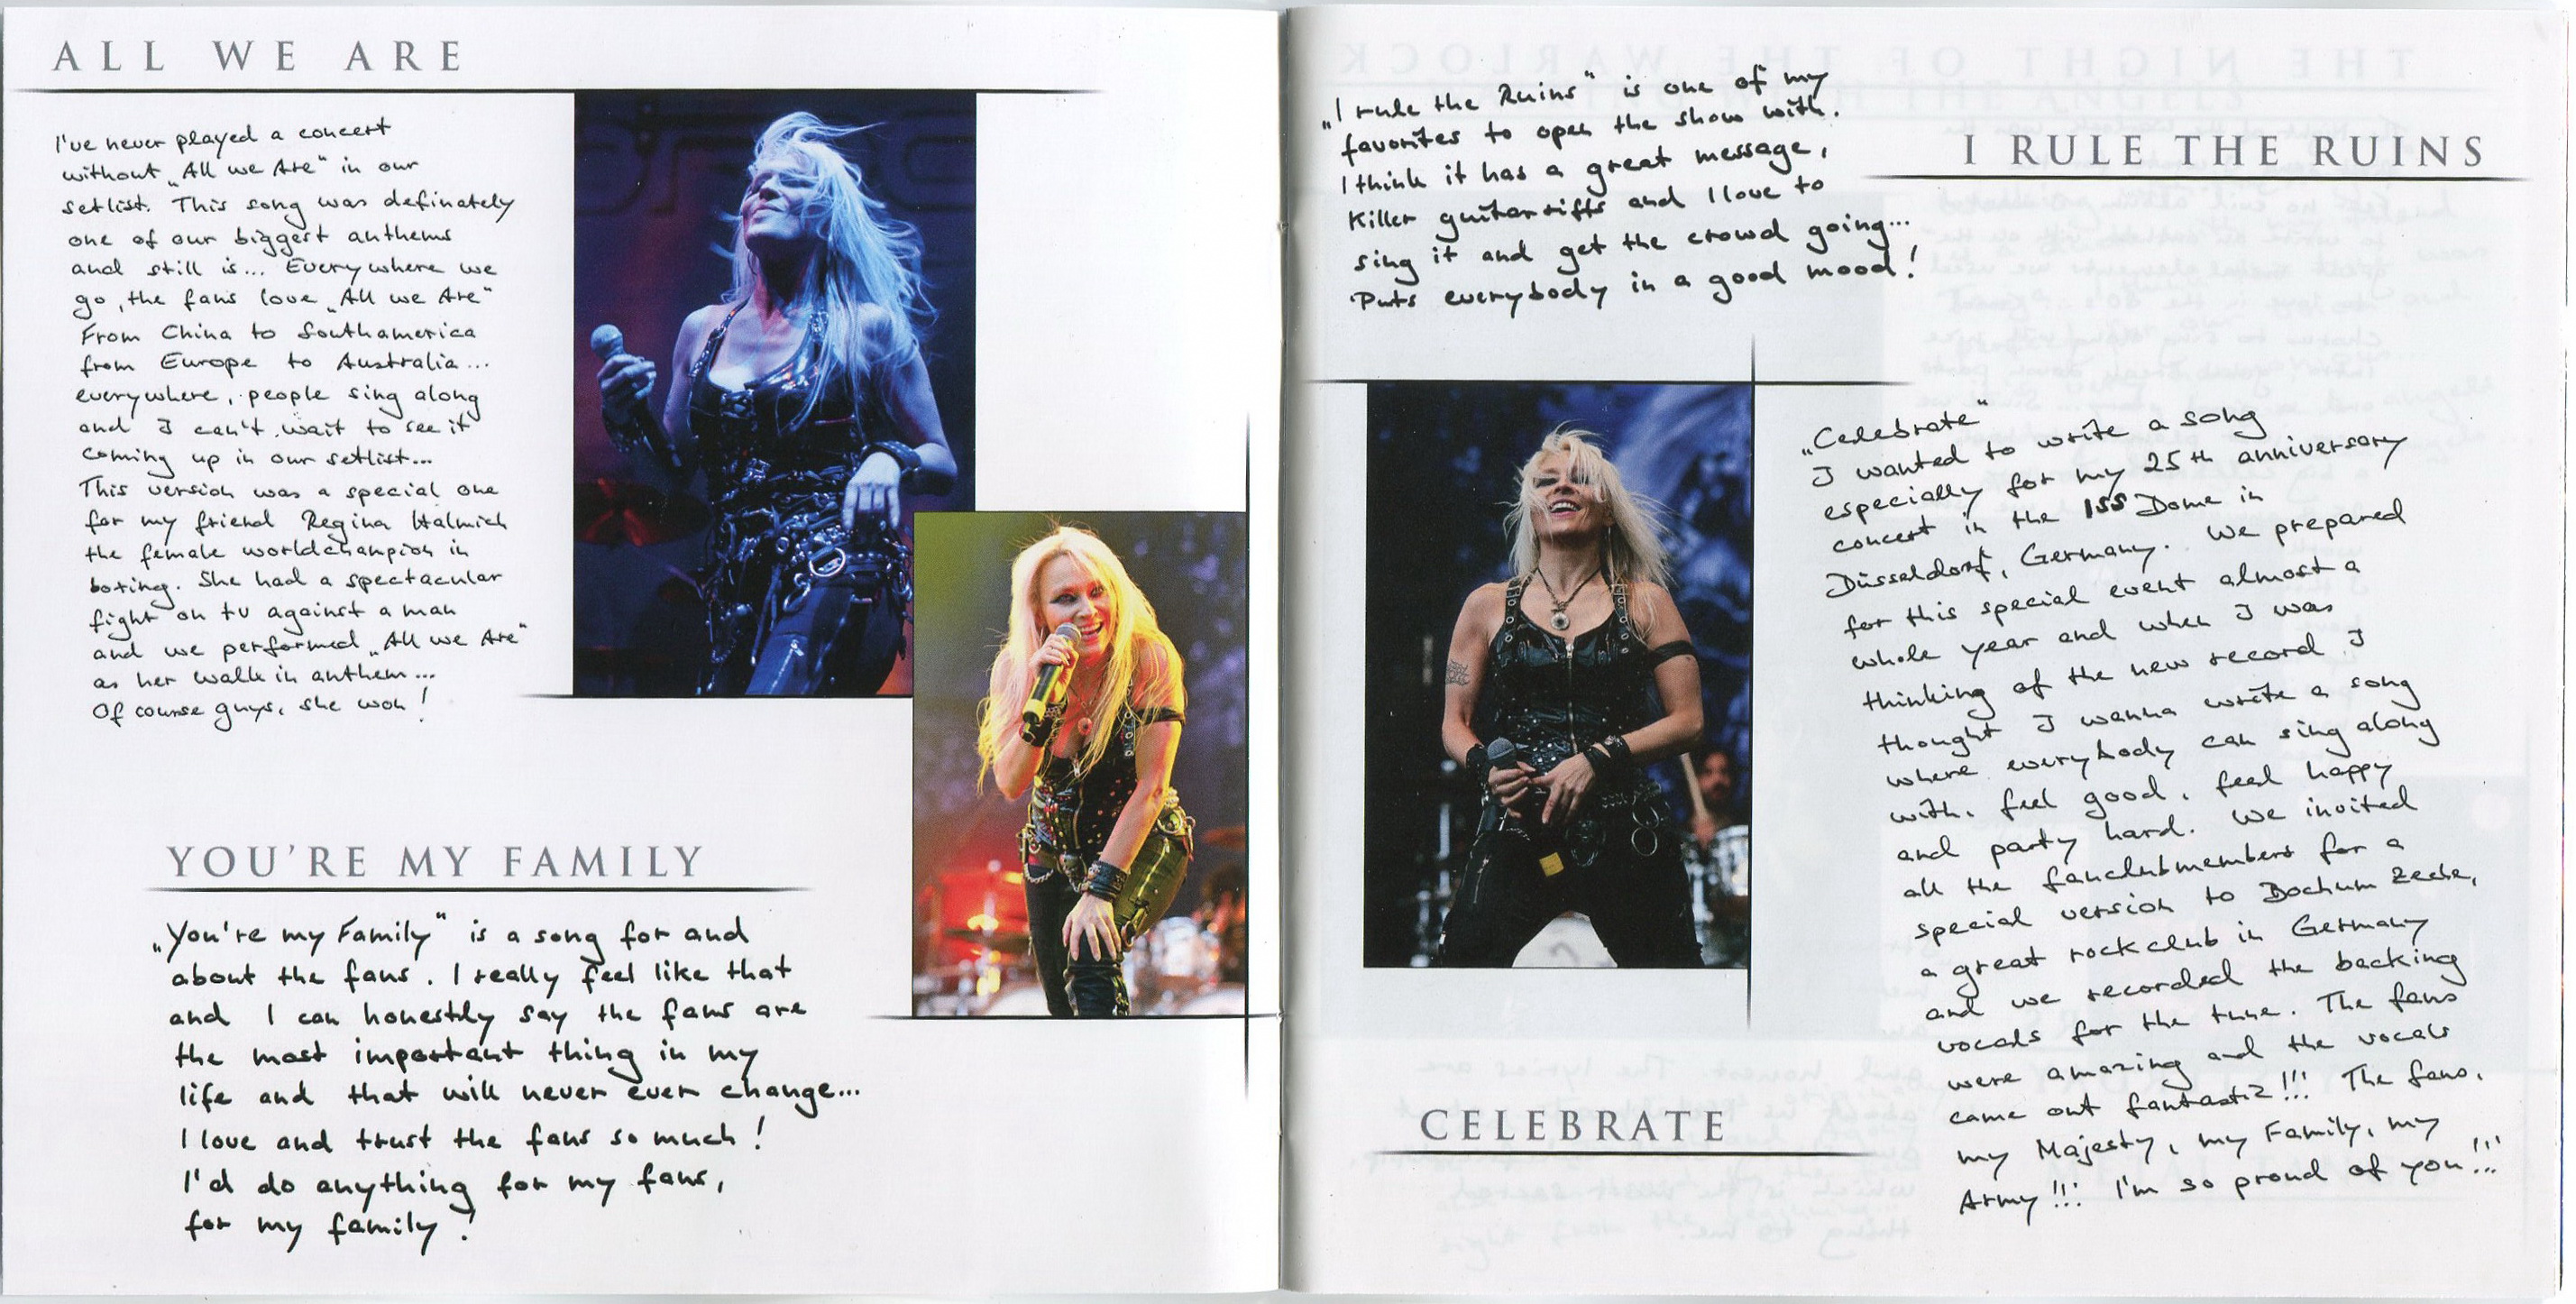 ALL WE ARE
I've never played a concert
without „All we Are" in our
setlist. This song was definately
one of our biggest anthems
and still is... Everywhere we
go, the fans love „All we Are"
From China to Southamerica
from Europe to Australia...
everywhere, people sing along
and I can't wait to see it
coming up in our setlist...
This version was a special one
for my friend Regina Halmich
the female worldchampion in
boxing. She had a spectacular
fight on tv against a man
and we performed „All we Are"
as her walk in anthem...
Of course guys, she won!
YOU'RE MY FAMILY
„You're my Family" is a song for and
about the fans. I really feel like that
and I can honestly say the fans are
the most important thing in my
life and that will never ever change...
I love and trust the fans so much!
I'd do anything for my fans,
for my family!
I RULE THE RUINS
„I rule the Ruins" is one of my
favorites to open the show with.
I think it has a great message,
Killer guitarriffs and I love to
sing it and get the crowd going...
Puts everybody in a good mood!
CELEBRATE
„Celebrate"
I wanted to write a song
especially for my 25th anniversary
concert in the ISS Dome in
Düsseldorf, Germany. We prepared
for this special event almost a
whole year and when I was
thinking of the new record I
thought I wanna write a song
where everybody can sing along
with, feel good, feel happy
and party hard. We invited
all the fanclubmembers for a
special version to Bochum Zeche,
a great rockclub in Germany
and we recorded the backing
vocals for the tune. The fans
were amazing and the vocals
came out fantastic!!! The fans,
my Majesty, my Family, my
Army!!! I'm so proud of you!!!